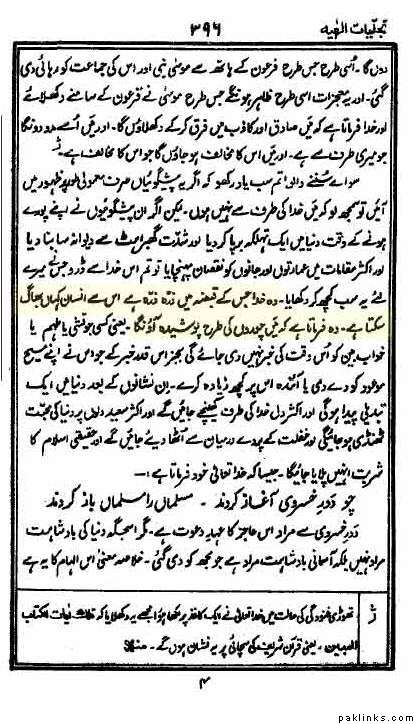 تجلّیات الٰہیہ
۳۹۶
دوں گا۔ اُسی طرح جس طرح فرعون کے ہاتھ سے موسیٰ نبی اور اس کی جماعت کو رہائی دی
گئی۔ اور یہ معجزات اسی طرح ظاہر ہونگے جس طرح موسیٰ نے فرعون کے سامنے دکھلائے
اور خدا فرماتا ہے کہ میں صادق اور کاذب میں فرق کرکے دکھلاؤں گا۔ اور میں اُسے مدد دونگا
جو میری طرف سے ہے۔ اور میں اس کا مخالف ہو جاؤں گا جو اس کا مخالف ہے۔
سو اے سننے والو! تم سب یاد رکھو کہ اگر یہ پیشگوئیاں صرف معمولی طور پر ظہور میں
آئیں تو سمجھ لو کہ میں خدا کی طرف سے نہیں ہوں۔ لیکن اگر ان پیشگوئیوں نے اپنے پورے
ہونے کے وقت دنیا میں ایک تہلکہ برپا کر دیا اور شدّت گھبراہٹ سے دیوانہ سا بنا دیا
اور اکثر مقامات میں عمارتوں اور جانوں کو نقصان پہنچایا تو تم اس خدا سے ڈرو جس نے میرے
لئے یہ سب کچھ کر دکھایا۔ وہ خدا جس کے قبضہ میں ذرّہ ذرّہ ہے اس سے انسان کہاں بھاگ
سکتا ہے۔ وہ فرماتا ہے کہ میں چوروں کی طرح پوشیدہ آؤنگا۔ یعنی کسی جوتشی یا ملہم یا
خواب بین کو اُس وقت کی خبر نہیں دی جائے گی بجز اس قدر خبر کے جو اس نے اپنے مسیح
موعود کو دے دی یا آئندہ اس پر کچھ زیادہ کرے۔ ان نشانوں کے بعد دنیا میں ایک
تبدیلی پیدا ہوگی اور اکثر دل خدا کی طرف کھینچے جائیں گے اور اکثر سعید دلوں پر دنیا کی محبّت
ٹھنڈی ہو جائیگی اور غفلت کے پردے درمیان سے اُٹھا دیئے جائیں گے اور حقیقی اسلام کا
شربت اُنہیں پلایا جائیگا۔ جیسا کہ خدا تعالیٰ خود فرماتا ہے:۔
چو دَورِ خسروی آغاز کردند ۔ مسلماں را مسلماں باز کردند
دَورِ خسروی سے مراد اس عاجز کا عہدِ دعوت ہے۔ مگر اسجگہ دنیا کی بادشاہت
مراد نہیں بلکہ آسمانی بادشاہت مراد ہے جو مجھ کو دی گئی۔ خلاصہ معنی اس الہام کا یہ ہے
تھوڑی غنودگی کی حالت میں خدا تعالیٰ نے ایک کاغذ پر لکھا ہوا مجھے یہ دکھلایا کہ تلك اٰيات الكتاب
المبين۔ یعنی قرآن شریف کی سچائی پر یہ نشان ہوں گے۔ منہ
۴
paklinks.com